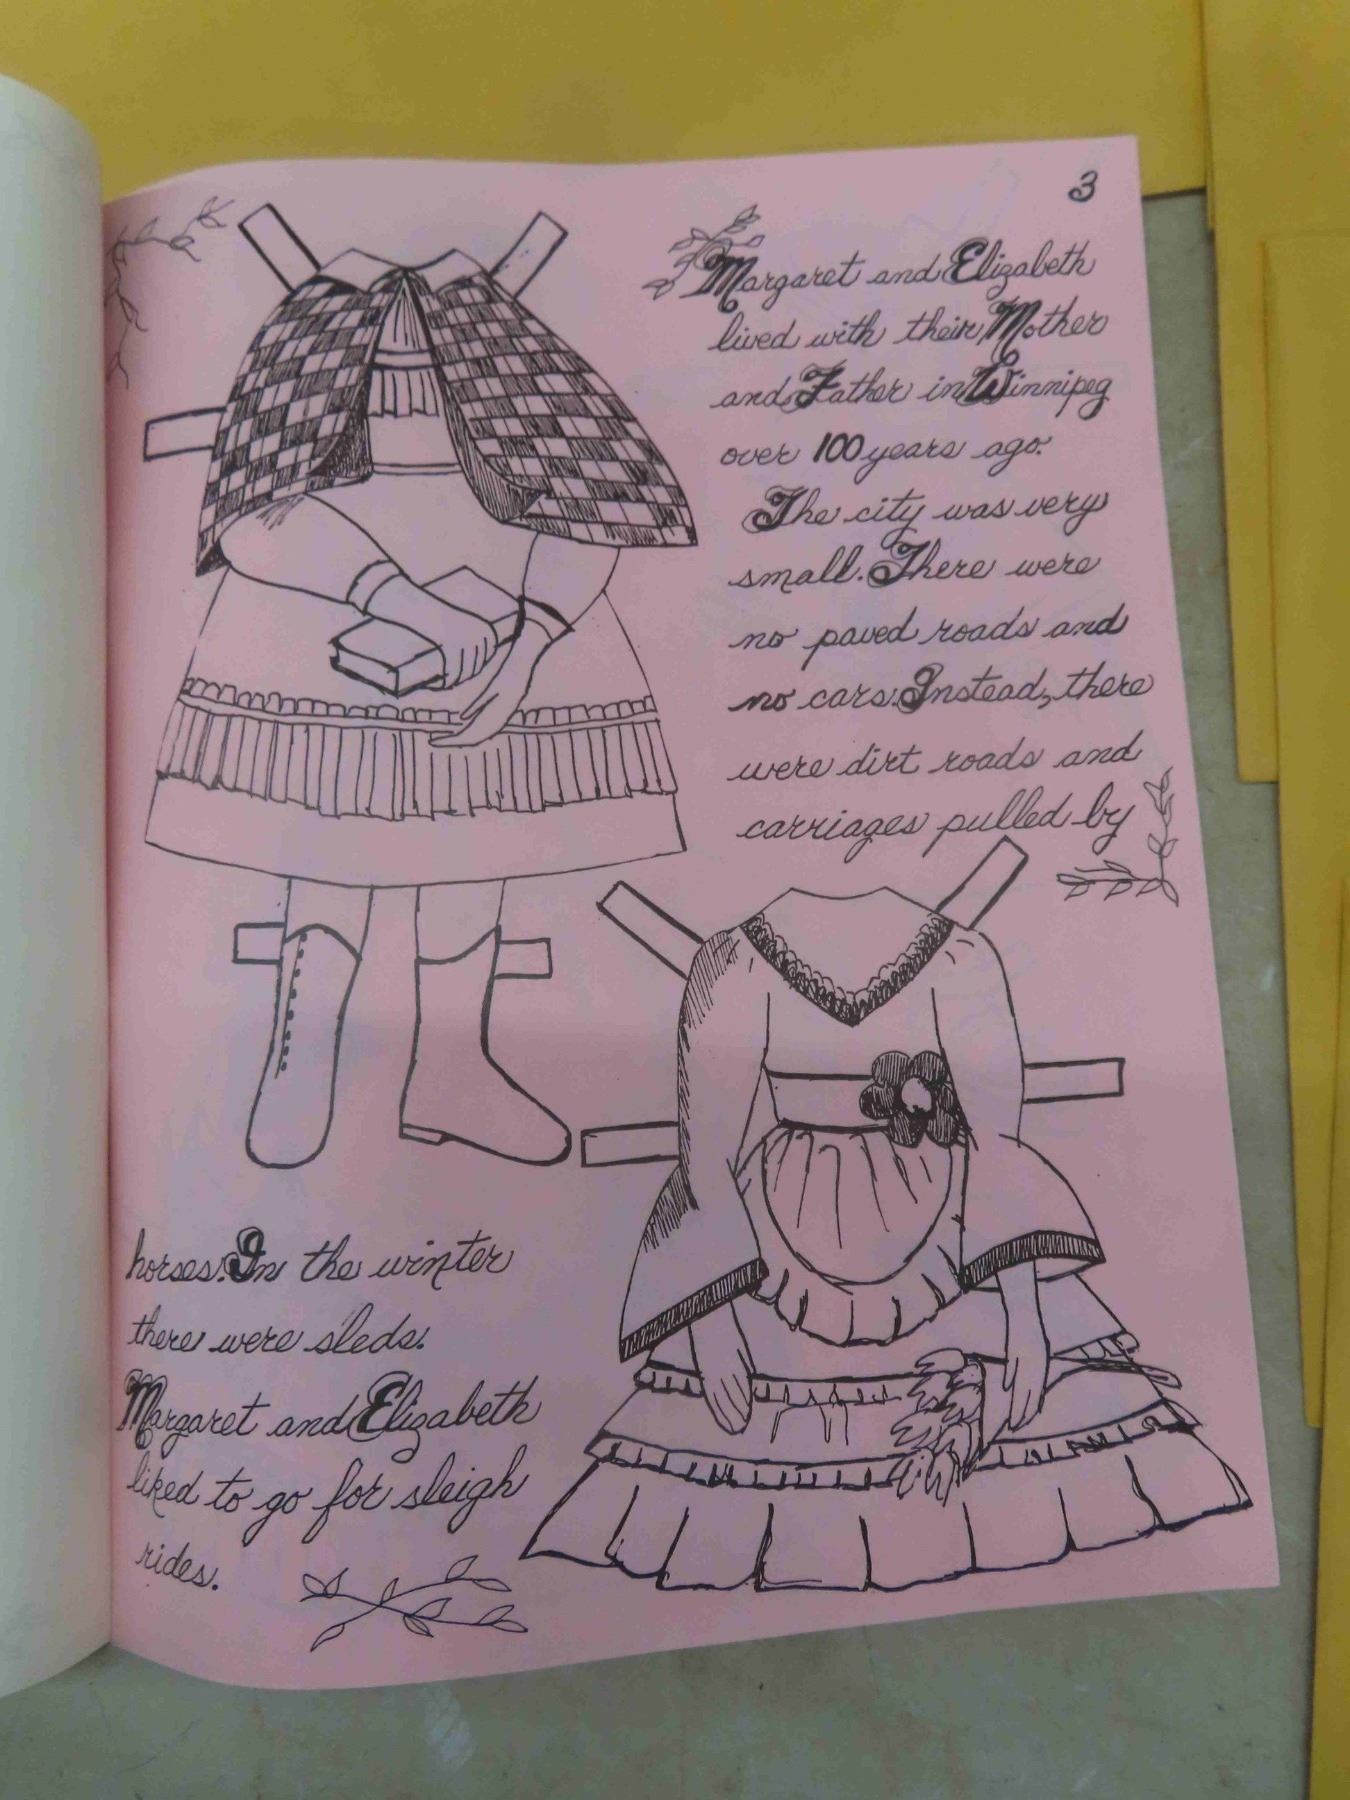 3
Margaret and Elizabeth
lived with their Mother
and Father in Winnipeg
over 100 years ago.
The city was very
small. There were
no paved roads and
no cars. Instead, there
were dirt roads and
carriages pulled by
horses. In the winter
there were sleds.
Margaret and Elizabeth
liked to go for sleigh
rides.